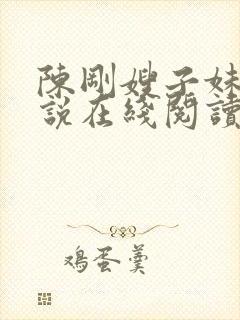 陳剛嫂子妹
說在綫閱讀
鸡蛋羹